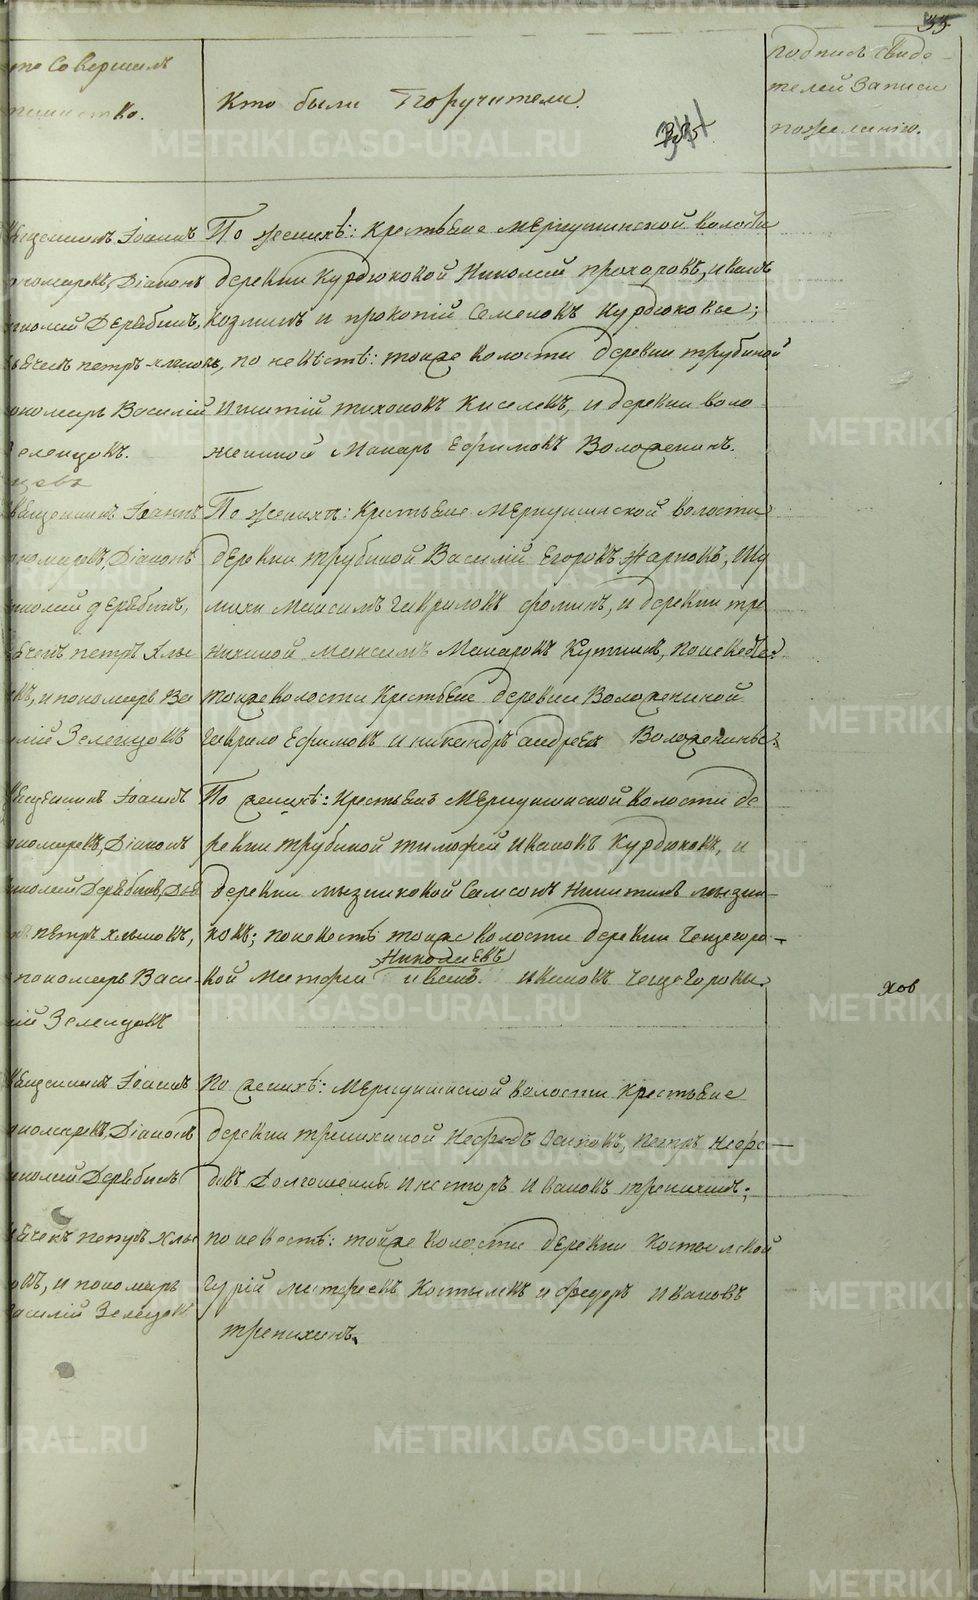 33
кто Совершилъ
таинство.
Кто были Поручители.
341
подпись свидѣ-
телей Записи
по желанію.
Священникъ Іоаннъ
Пономаревъ, Діаконъ
Николай Дерябинъ,
дьячекъ петръ хлыновъ,
пономарь Василій
Зеленцовъ.
По женихѣ: Крестьяне Меркушинской волости
деревни Курдюковой Николай прохоровъ, иванъ
козминъ и прокопій Семеновъ Курдюковы;
по невѣстѣ: тойже волости деревни трубиной
игнатій тихоновъ Киселевъ, и деревни воло
жениной Макаръ Ефимовъ Воложенинъ.
Священникъ Іоаннъ
Пономаревъ, Діаконъ
Николай дерябинъ,
дьячекъ петръ Хлы
новъ, и пономарь Ва
силій Зеленцовъ
По женихѣ: Крестьяне Меркушинской волости
деревни трубиной Василій Егоровъ Жарковъ, Шу
михи Максимъ гавриловъ фоминъ, и деревни тре
нихиной Максимъ Макаровъ Куткинъ, по невѣстѣ
тойже волости Крестьяне деревни Воложениной
гаврило Ефимовъ и никандръ андреевъ Воложенины.
Священникъ Іоаннъ
Пономаревъ, Діаконъ
Николай Дерябинъ, Дья
чекъ петръ хлыновъ,
и пономарь Васи
лій Зеленцовъ
По женихѣ: Крестьяне Меркушинской волости де
ревни трубиной тимофей ивановъ Курдюковъ, и
деревни мызниковой Самсонъ Никитинъ мызни-
ковъ; по невѣстѣ тойже волости деревни Чещегоро-
Николаевъ
вой матфей иванъ ивановъ Чещегоровы.
хов
Священникъ Іоаннъ
Пономаревъ, Діаконъ
Николай Дерябинъ
дьячекъ петръ Хлы
новъ, и пономарь
Василій Зеленцовъ
По женихѣ: Меркушинской волости Крестьяне
деревни трпихиной Нефедъ Осиповъ, петръ Нефе-
довъ Долгошеины и несторъ Ивановъ трепихинъ;
по невѣстѣ: тойже волости деревни Костылевой
гурій матфеевъ Костылевъ и федоръ Ивановъ
трепихинъ.